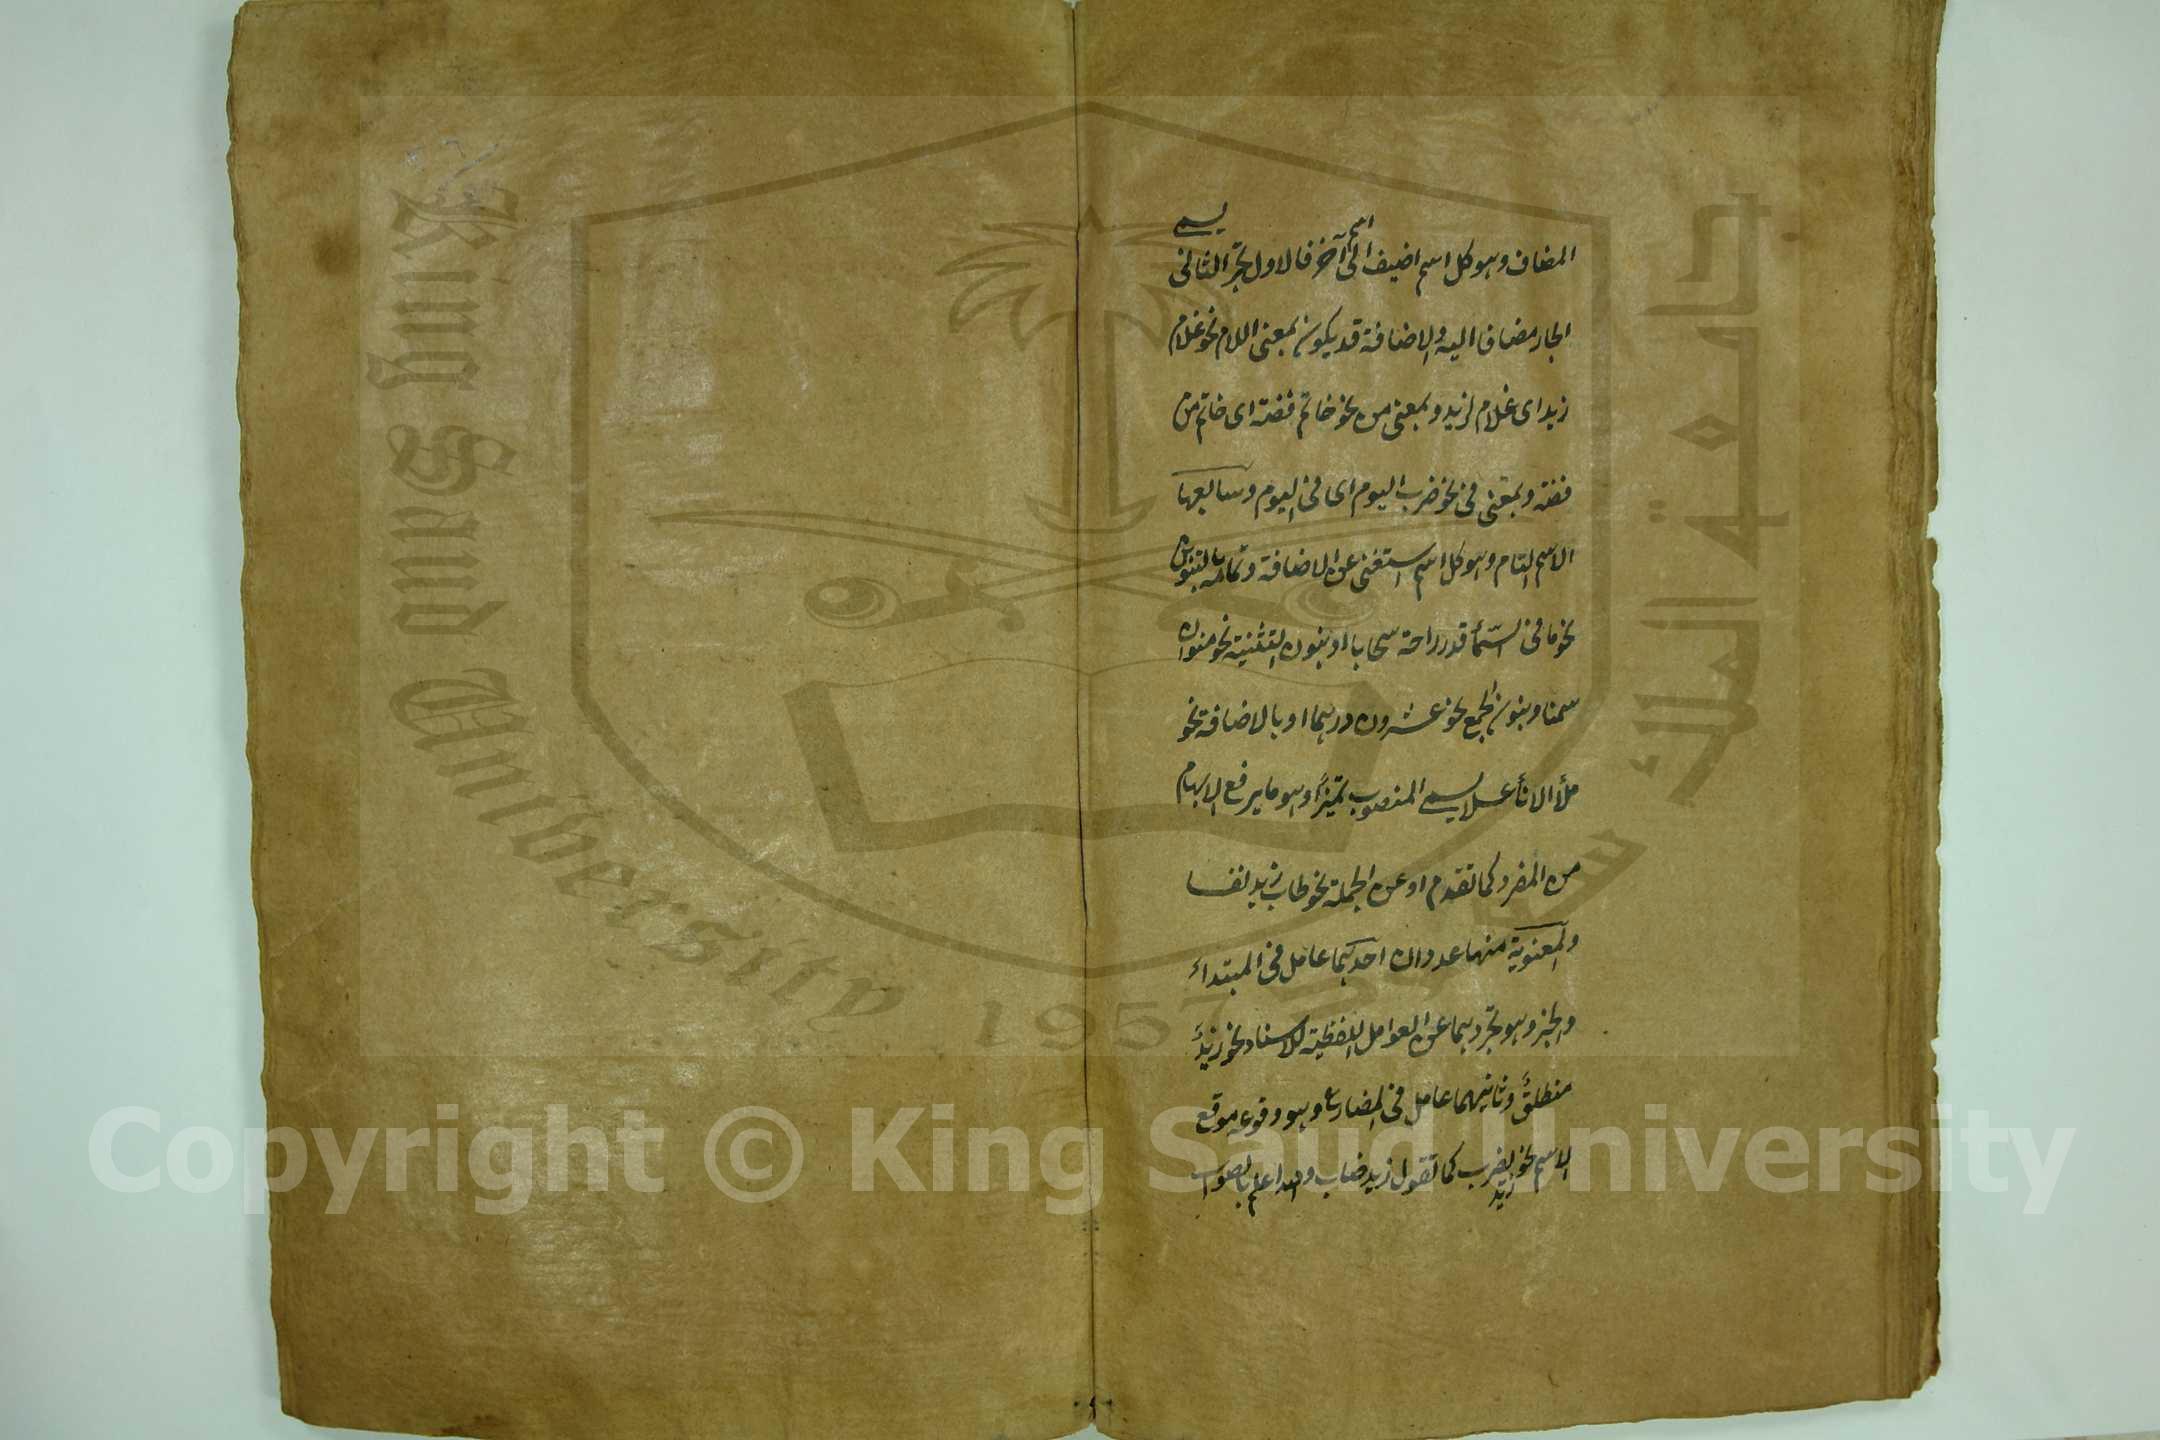 المضاف وهو كل اسم اضيف الى اسم آخر فالاول يجر الثانى يسمى
الجار مضافا اليه والاضافة قد يكون بمعنى اللام نحو غلام
زيد اى غلام لزيد وبمعنى من نحو خاتم فضة اى خاتم من
فضة وبمعنى فى نحو ضرب اليوم اى فى اليوم وسابعها
الاسم التام وهو كل اسم استغنى عن الاضافة وتمامه بالتنوين
نحو ما فى السّمأ قدر راحة سحابا او بنون التثنية نحو منوان
سمنا وبنون الجمع نحو عشرون درهما او بالاضافة نحو
ملأ الانأ عسلا يسمى المنصوب تميزاً وهو ما يرفع الابهام
من المفرد كما تقدم او عن الجملة نحو طاب زيد نفسا
والمعنوية منها عددان احدهما عامل فى المبتداء
والخبر وهو تجردهما عن العوامل اللفظية للاسناد نحو زيدٌ
منطلقٌ وثانيهما عامل فى المضارع وهو وقوعه موقع
الاسم نحو زيد يضرب كما تقول زيد ضاب والله اعلم بالصواب
King Saud University 1957
جامعة الملك سعود
Copyright © King Saud University